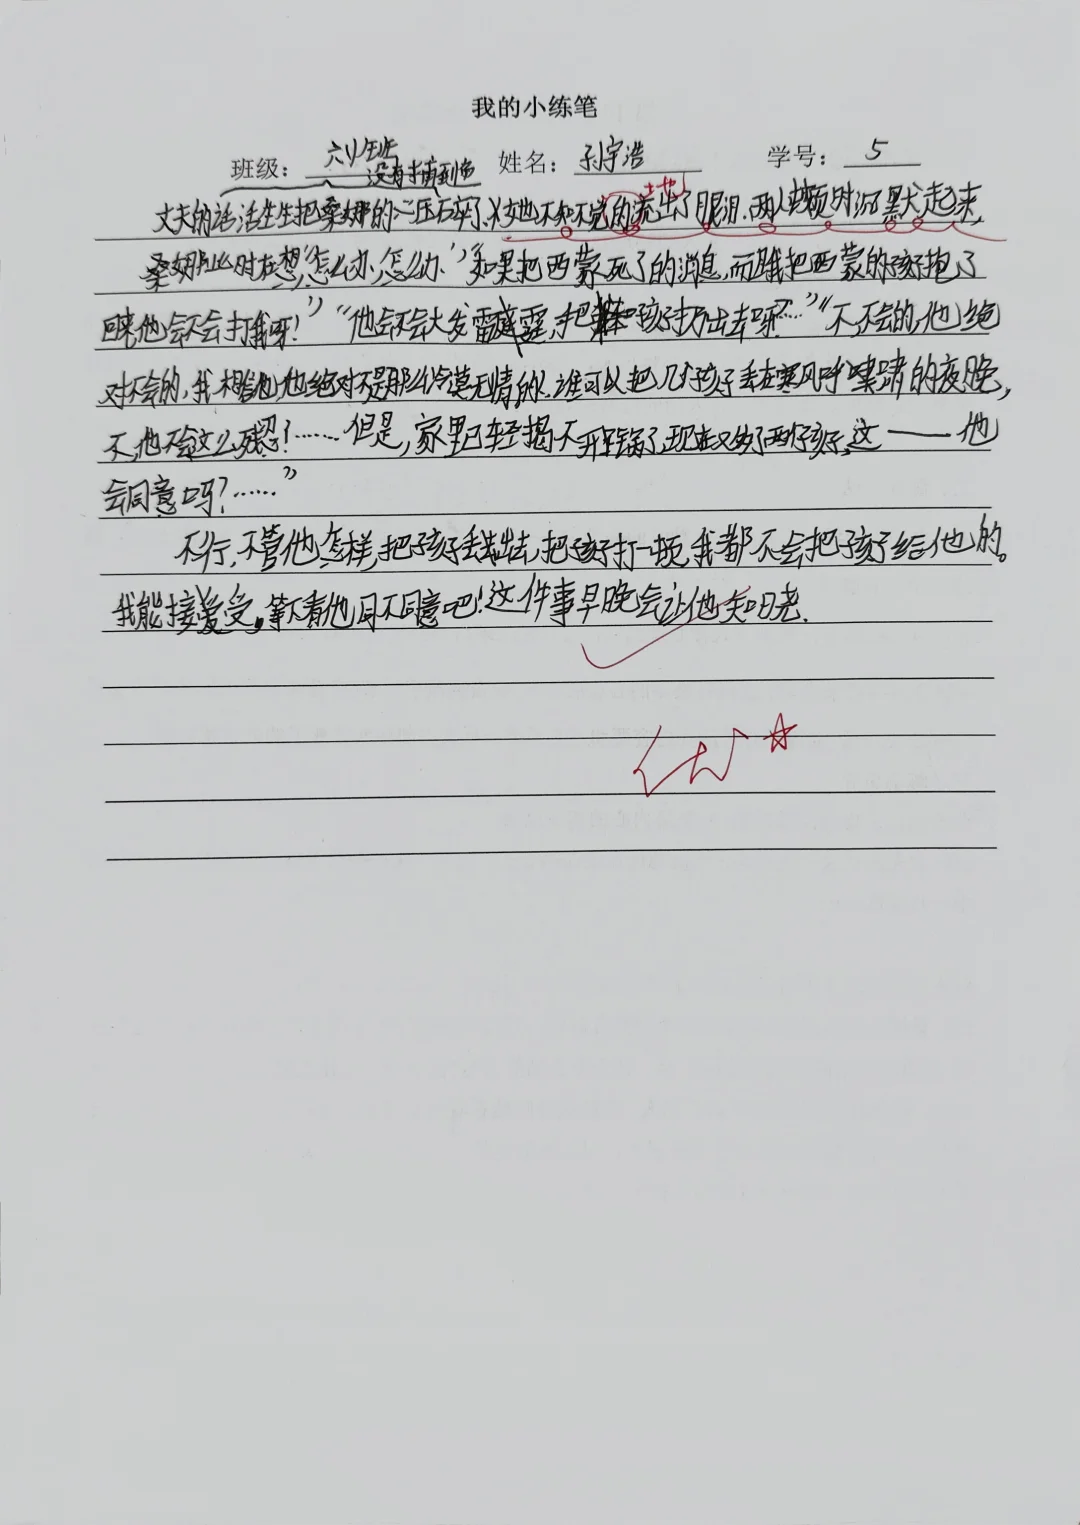 我的小练笔
班级：六(1)班 姓名：孙宇浩 学号：5
没有描到色
丈夫的话活生生把桑娜的心压碎了,她不知不觉的流出了眼泪.两人顿时沉默起来,
地
桑娜此时在想“怎么办、怎么办、”如果把西蒙死了的消息,而且我把西蒙的孩子抱了
回来他会不会打我呀!”“他会不会大发雷霆,把我和孩子扔出去呀?……”“不,不会的,他绝
对不会的,我相信他,他绝对不是那么冷漠无情的人.谁可以把几个孩子丢在寒风呼啸的夜晚,
不,他不会这么残忍!……但是,家里已经揭不开锅了,现在又多了两个孩子,这——他
会同意吗?……”
不行,不管他怎样,把孩子丢出去,把孩子打一顿,我都不会把孩子给他的。
我能接受,等着看他同不同意吧!这件事早晚会让他知晓.
优